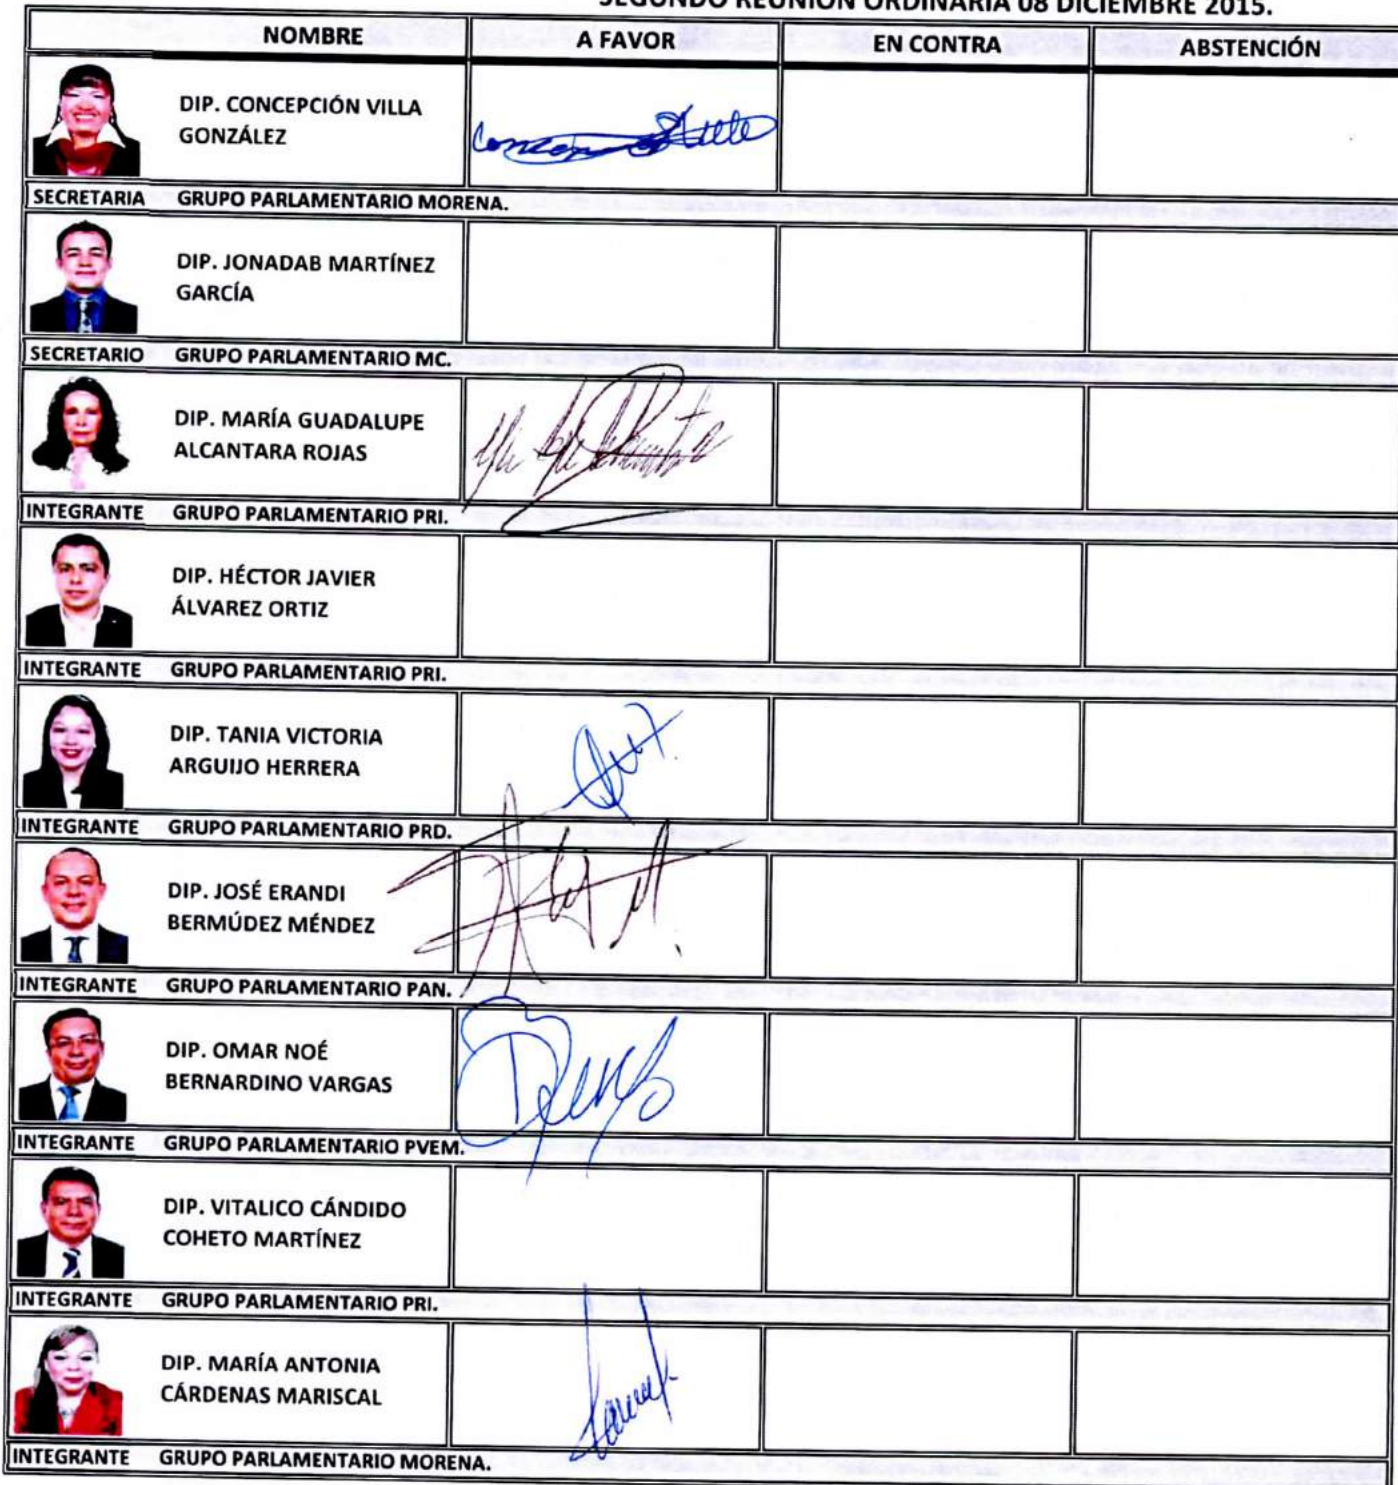 SEGUNDO REUNIÓN ORDINARIA 08 DICIEMBRE 2015.
NOMBRE A FAVOR EN CONTRA ABSTENCIÓN
DIP. CONCEPCIÓN VILLA
GONZÁLEZ
SECRETARIA GRUPO PARLAMENTARIO MORENA.
DIP. JONADAB MARTÍNEZ
GARCÍA
SECRETARIO GRUPO PARLAMENTARIO MC.
DIP. MARÍA GUADALUPE
ALCANTARA ROJAS
INTEGRANTE GRUPO PARLAMENTARIO PRI.
DIP. HÉCTOR JAVIER
ÁLVAREZ ORTIZ
INTEGRANTE GRUPO PARLAMENTARIO PRI.
DIP. TANIA VICTORIA
ARGUIJO HERRERA
INTEGRANTE GRUPO PARLAMENTARIO PRD.
DIP. JOSÉ ERANDI
BERMÚDEZ MÉNDEZ
INTEGRANTE GRUPO PARLAMENTARIO PAN.
DIP. OMAR NOÉ
BERNARDINO VARGAS
INTEGRANTE GRUPO PARLAMENTARIO PVEM.
DIP. VITALICO CÁNDIDO
COHETO MARTÍNEZ
INTEGRANTE GRUPO PARLAMENTARIO PRI.
DIP. MARÍA ANTONIA
CÁRDENAS MARISCAL
INTEGRANTE GRUPO PARLAMENTARIO MORENA.